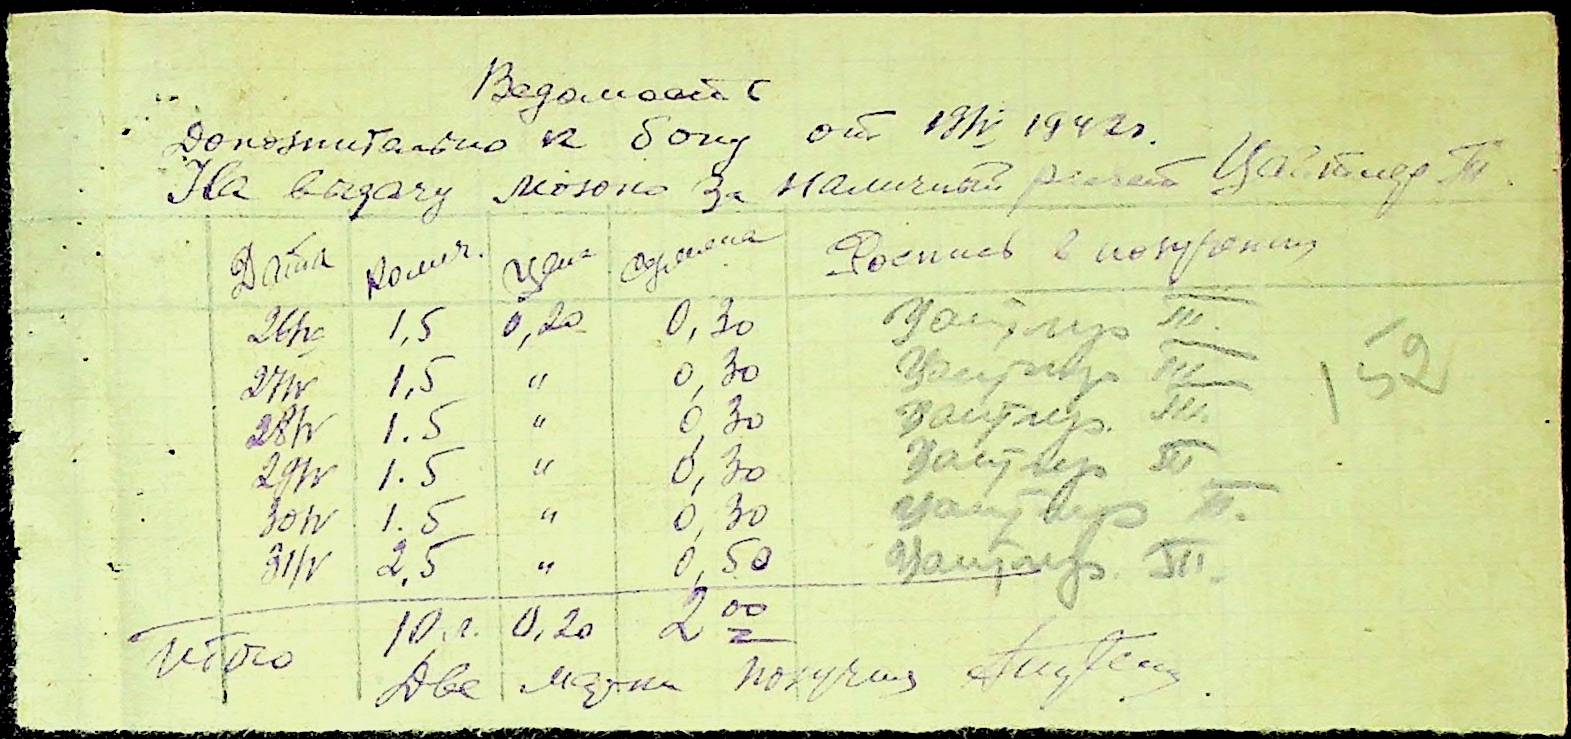 Ведомость
Дополнительно к бону от 19/IV 1942г.
На выдачу молока за наличный расчет Цайтлер Т.
Дата Колич. Цена Сумма Роспись в получении
26/IV 1,5 0,20 0,30 Цайтлер Т.
27/IV 1,5 " 0,30 Цайтлер Т.
28/IV 1.5 " 0,30 Цайтлер Т.
29/IV 1.5 " 0,30 Цайтлер Т
30/IV 1.5 " 0,30 Цайтлер Т.
31/IV 2,5 " 0,50 Цайтлер Т.
152
Итого 10 л. 0,20 2 00
Две марки получил